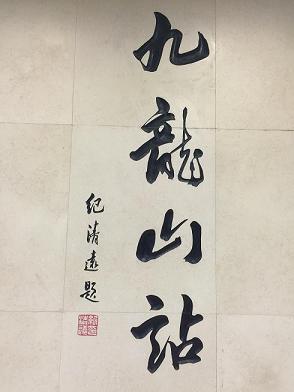 九龍山站
纪清遠題